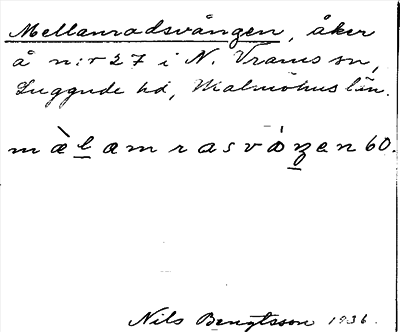 Mellanradsvången, åker
å n:r 27 i N. Vrams sn,
Luggude hd, Malmöhus län.
mæ̀lamrasvåŋen 60.
Nils Bengtsson 1936.